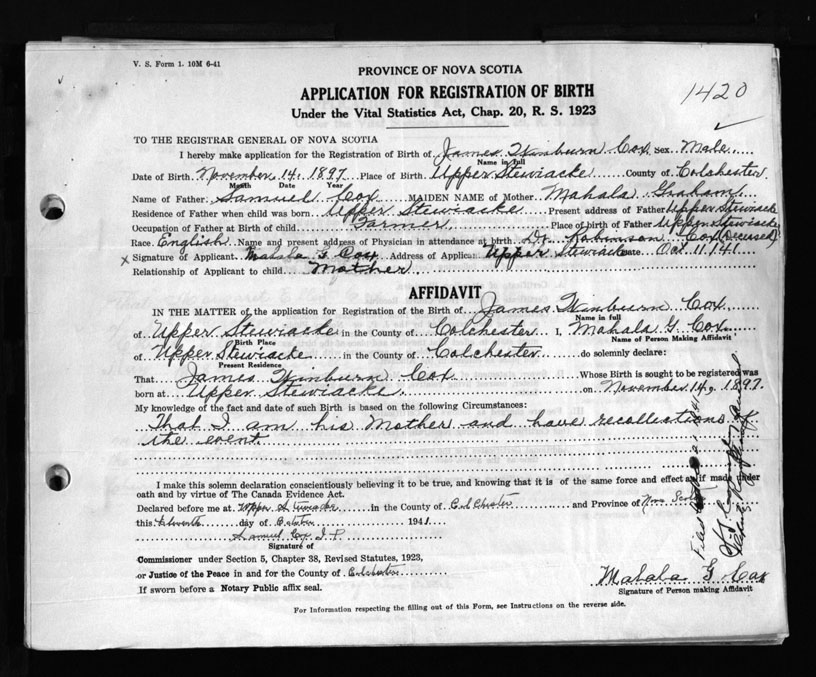 V. S. Form 1. 10M 6-41
PROVINCE OF NOVA SCOTIA
APPLICATION FOR REGISTRATION OF BIRTH
Under the Vital Statistics Act, Chap. 20, R. S. 1923
1420
TO THE REGISTRAR GENERAL OF NOVA SCOTIA
I hereby make application for the Registration of Birth of James Winburn Cox Sex Male
Name in full
Date of Birth November 14, 1897 Place of Birth Upper Stewiacke County of Colchester
Month Date Year
Name of Father Samuel Cox MAIDEN NAME of Mother Mahala Graham
Residence of Father when child was born Upper Stewiacke Present address of Father Upper Stewiacke
Occupation of Father at Birth of child Farmer Place of birth of Father Upper Stewiacke
Race English Name and present address of Physician in attendance at birth Dr. Robinson Cox (Deceased)
x Signature of Applicant Mahala G Cox Address of Applicant Upper Stewiacke Date Oct. 11/41
Relationship of Applicant to child Mother
AFFIDAVIT
IN THE MATTER of the application for Registration of the Birth of James Winburn Cox
Name in full
of Upper Stewiacke in the County of Colchester I, Mahala G Cox
Birth Place Name of Person Making Affidavit
of Upper Stewiacke in the County of Colchester do solemnly declare:
Present Residence
That James Winburn Cox Whose Birth is sought to be registered was
born at Upper Stewiacke. on November 14, 1897.
My knowledge of the fact and date of such Birth is based on the following Circumstances:
That I am his Mother and have recollections of
the event.
I make this solemn declaration conscientiously believing it to be true, and knowing that it is of the same force and effect as if made under
oath and by virtue of The Canada Evidence Act.
Declared before me at Upper Stewiacke in the County of Colchester and Province of Nova Scotia
this Eleventh day of October 1941
Samuel Cox J. P.
Signature of
Commissioner under Section 5, Chapter 38, Revised Statutes, 1923,
or Justice of the Peace in and for the County of Colchester
If sworn before a Notary Public affix seal.
Mahala G Cox
Signature of Person making Affidavit
For Information respecting the filling out of this Form, see Instructions on the reverse side.